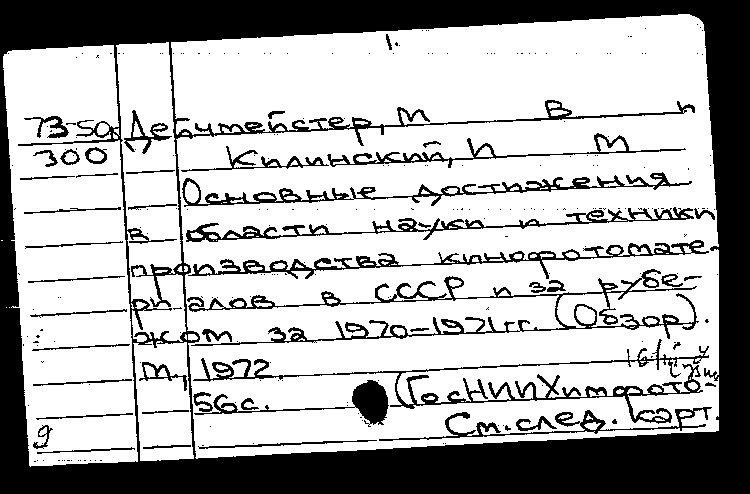 1.
73-50к Дейчмейстер, М В и
300 Килинский, И М
Основные достижения
в области науки и техники
производства кинофотомате-
риалов в СССР и за рубе-
жом за 1970-1971гг. (Обзор).
М., 1972.
56с. (ГосНИИХимфото-
См.след. карт.
9